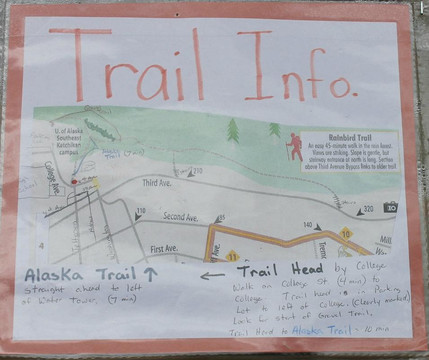 Trail Info.
U. of Alaska
Southeast
Ketchikan
campus
Rainbird Trail
An easy 45-minute walk in the rain forest.
Views are striking. Slope is gentle, but
stairway entrance at north is long. Section
above Third Avenue Bypass links to older trail
College Ave.
Third Ave.
210
320
110
Second Ave.
85
140
10
Mill
First Ave.
Ave.
11
4
Alaska Trail ↑
straight ahead to left
of Water Tower. (7 min)
← Trail Head by College
Walk on College St (4 min) to
College. Trail head is in Parking
Lot to left of College. (Clearly marked)
Look for start of Gravel Trail.
Trail Head to Alaska Trail - 10 min